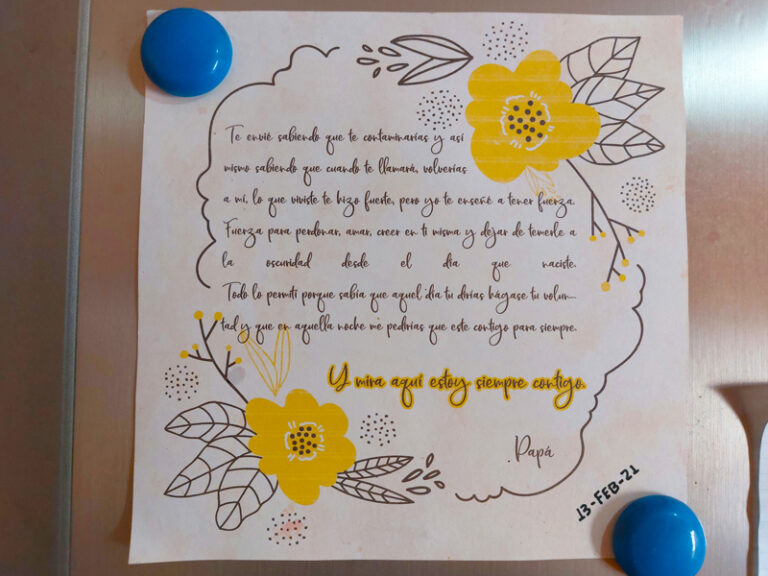 Te envié sabiendo que te contaminarías y así
mismo sabiendo que cuando te llamará, volverías
a mi, lo que viviste te hizo fuerte, pero yo te enseñé a tener fuerza.
Fuerza para perdonar, amar, creer en ti misma y dejar de temerle a
la oscuridad desde el día que naciste.
Todo lo permití porque sabía que aquel día tu dirías hágase tu volun-
tad y que en aquella noche me pedirías que este contigo para siempre.
Y mira aquí estoy siempre contigo.
Papá
13-FEB-21